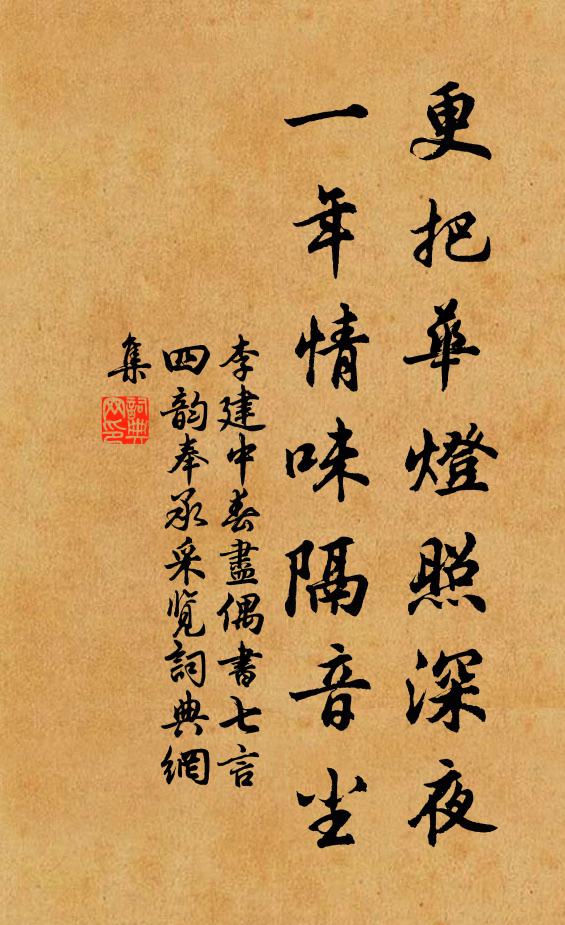 更把華燈照深夜
一年情味隔音尘
李建中春盡偶書七言
四韵奉承采覽詞典網
集
詞典网印